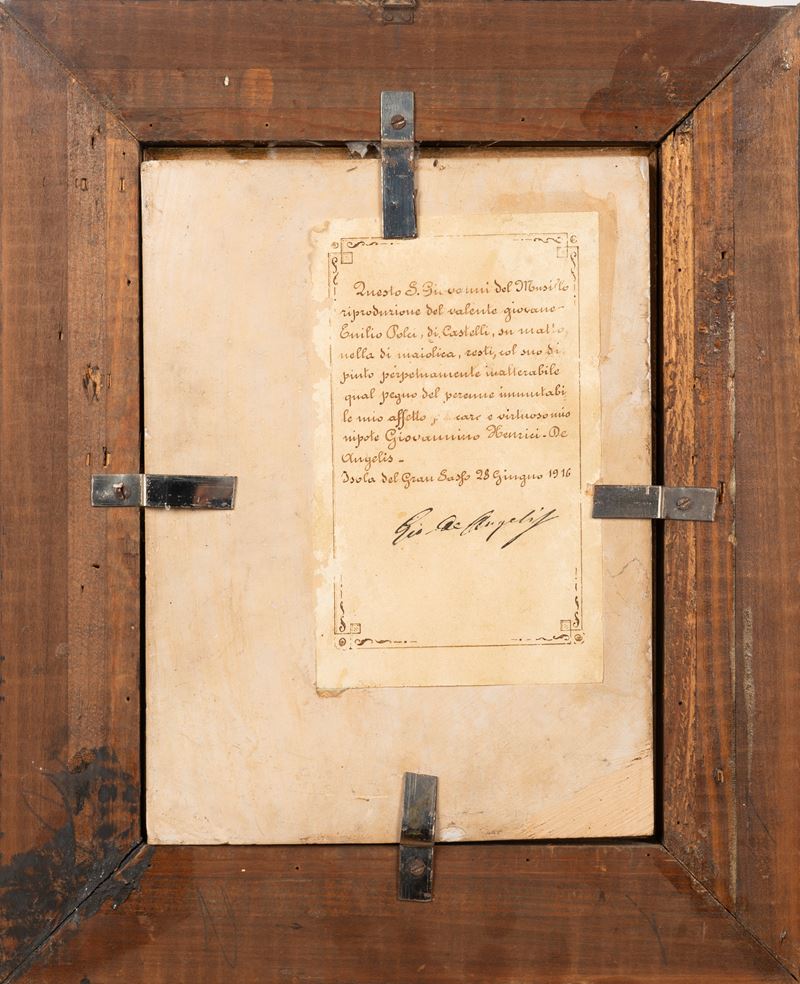 Questo S. Giovanni del Musillo
riproduzione del valente giovane
Emilio Polci, di Castelli, su matto,
nella di maiolica, resti, col suo di,
pinto perpetuamente inalterabile
qual pegno del perenne immutabi,
le mio affetto care e virtuoso mio
nipote Giovannino Henrici-De
Angelis-
Isola del Gran Sasso 28 Giugno 1916
Gio. De Angelis